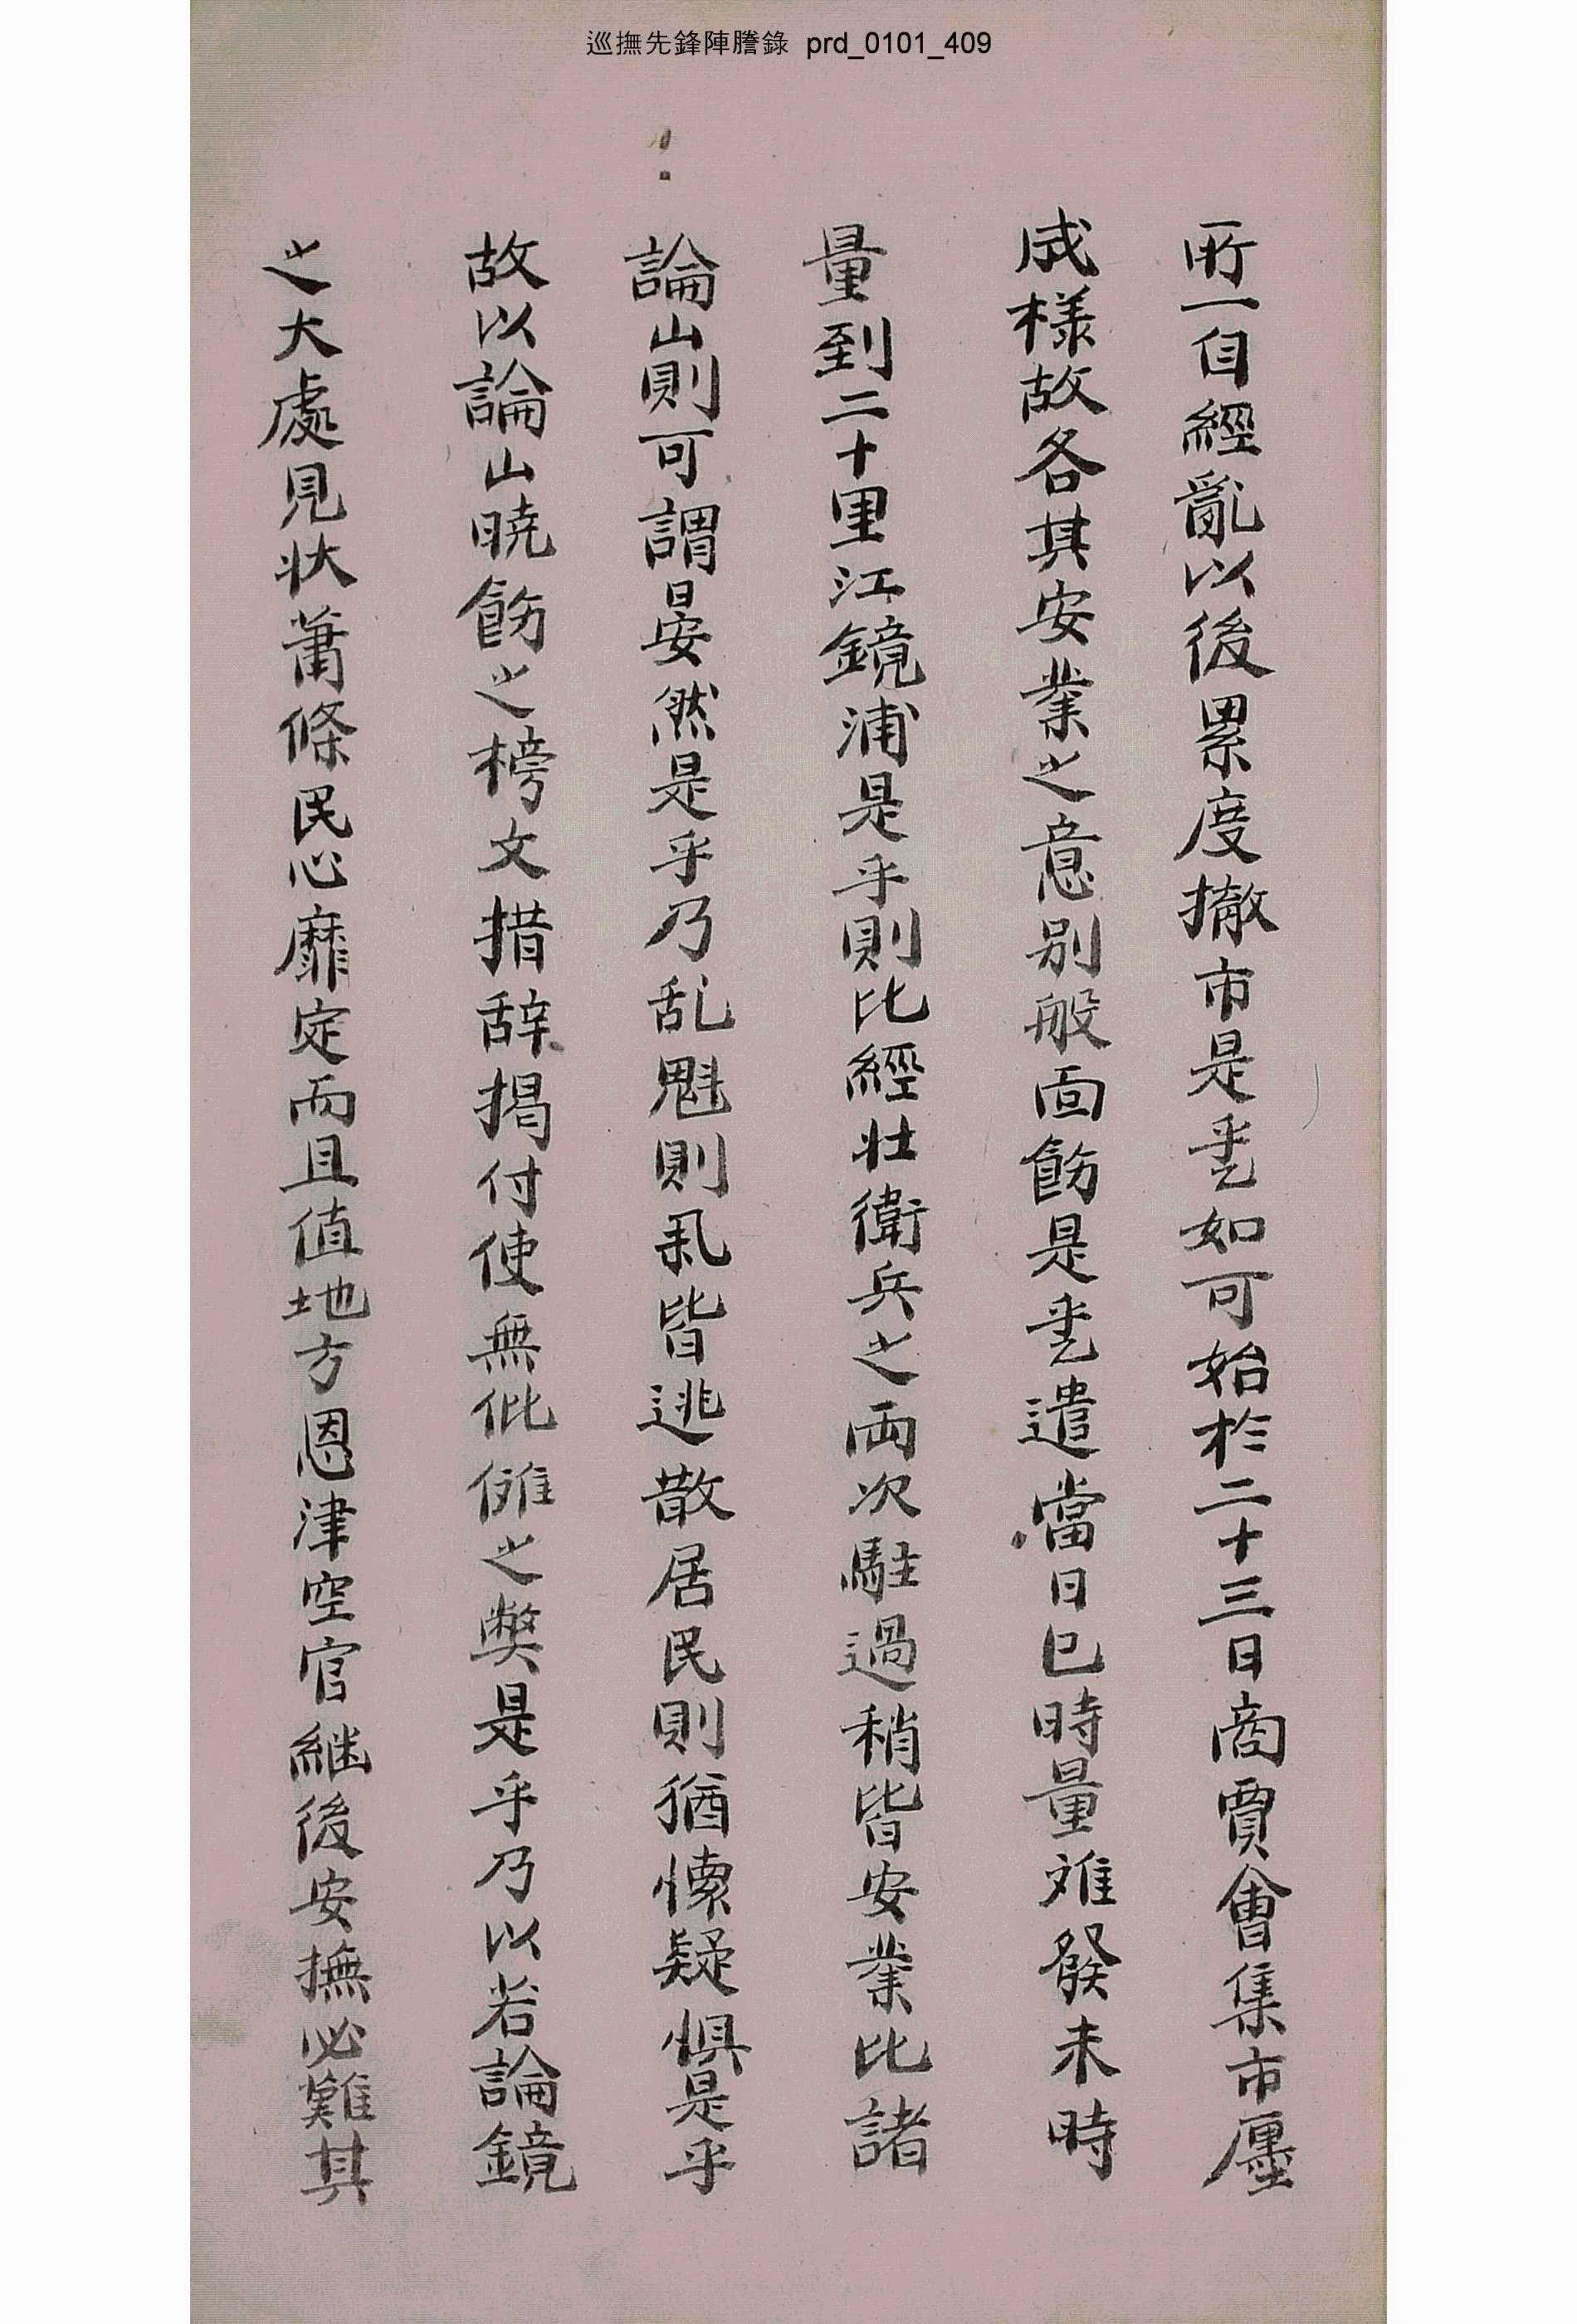 巡撫先鋒陣謄錄 prd_0101_409
所一自經亂以後累度撤市是乖如可始於二十三日商賈會集市廛
成樣故各其安業之意別般面飭是乖遣當日巳時量难發未時
量到二十里江鏡浦是乎則比經壯衛兵之兩次駐過稍皆安業比諸
論山則可謂晏然是乎乃乱魁則虱皆逃散居民則猶懷疑惧是乎
故以論山曉飭之榜文措辞揭付使無仳傩之獘是乎乃以若論鏡
之大處見状萧條民心靡定而且值地方恩津空官継後安撫必難其